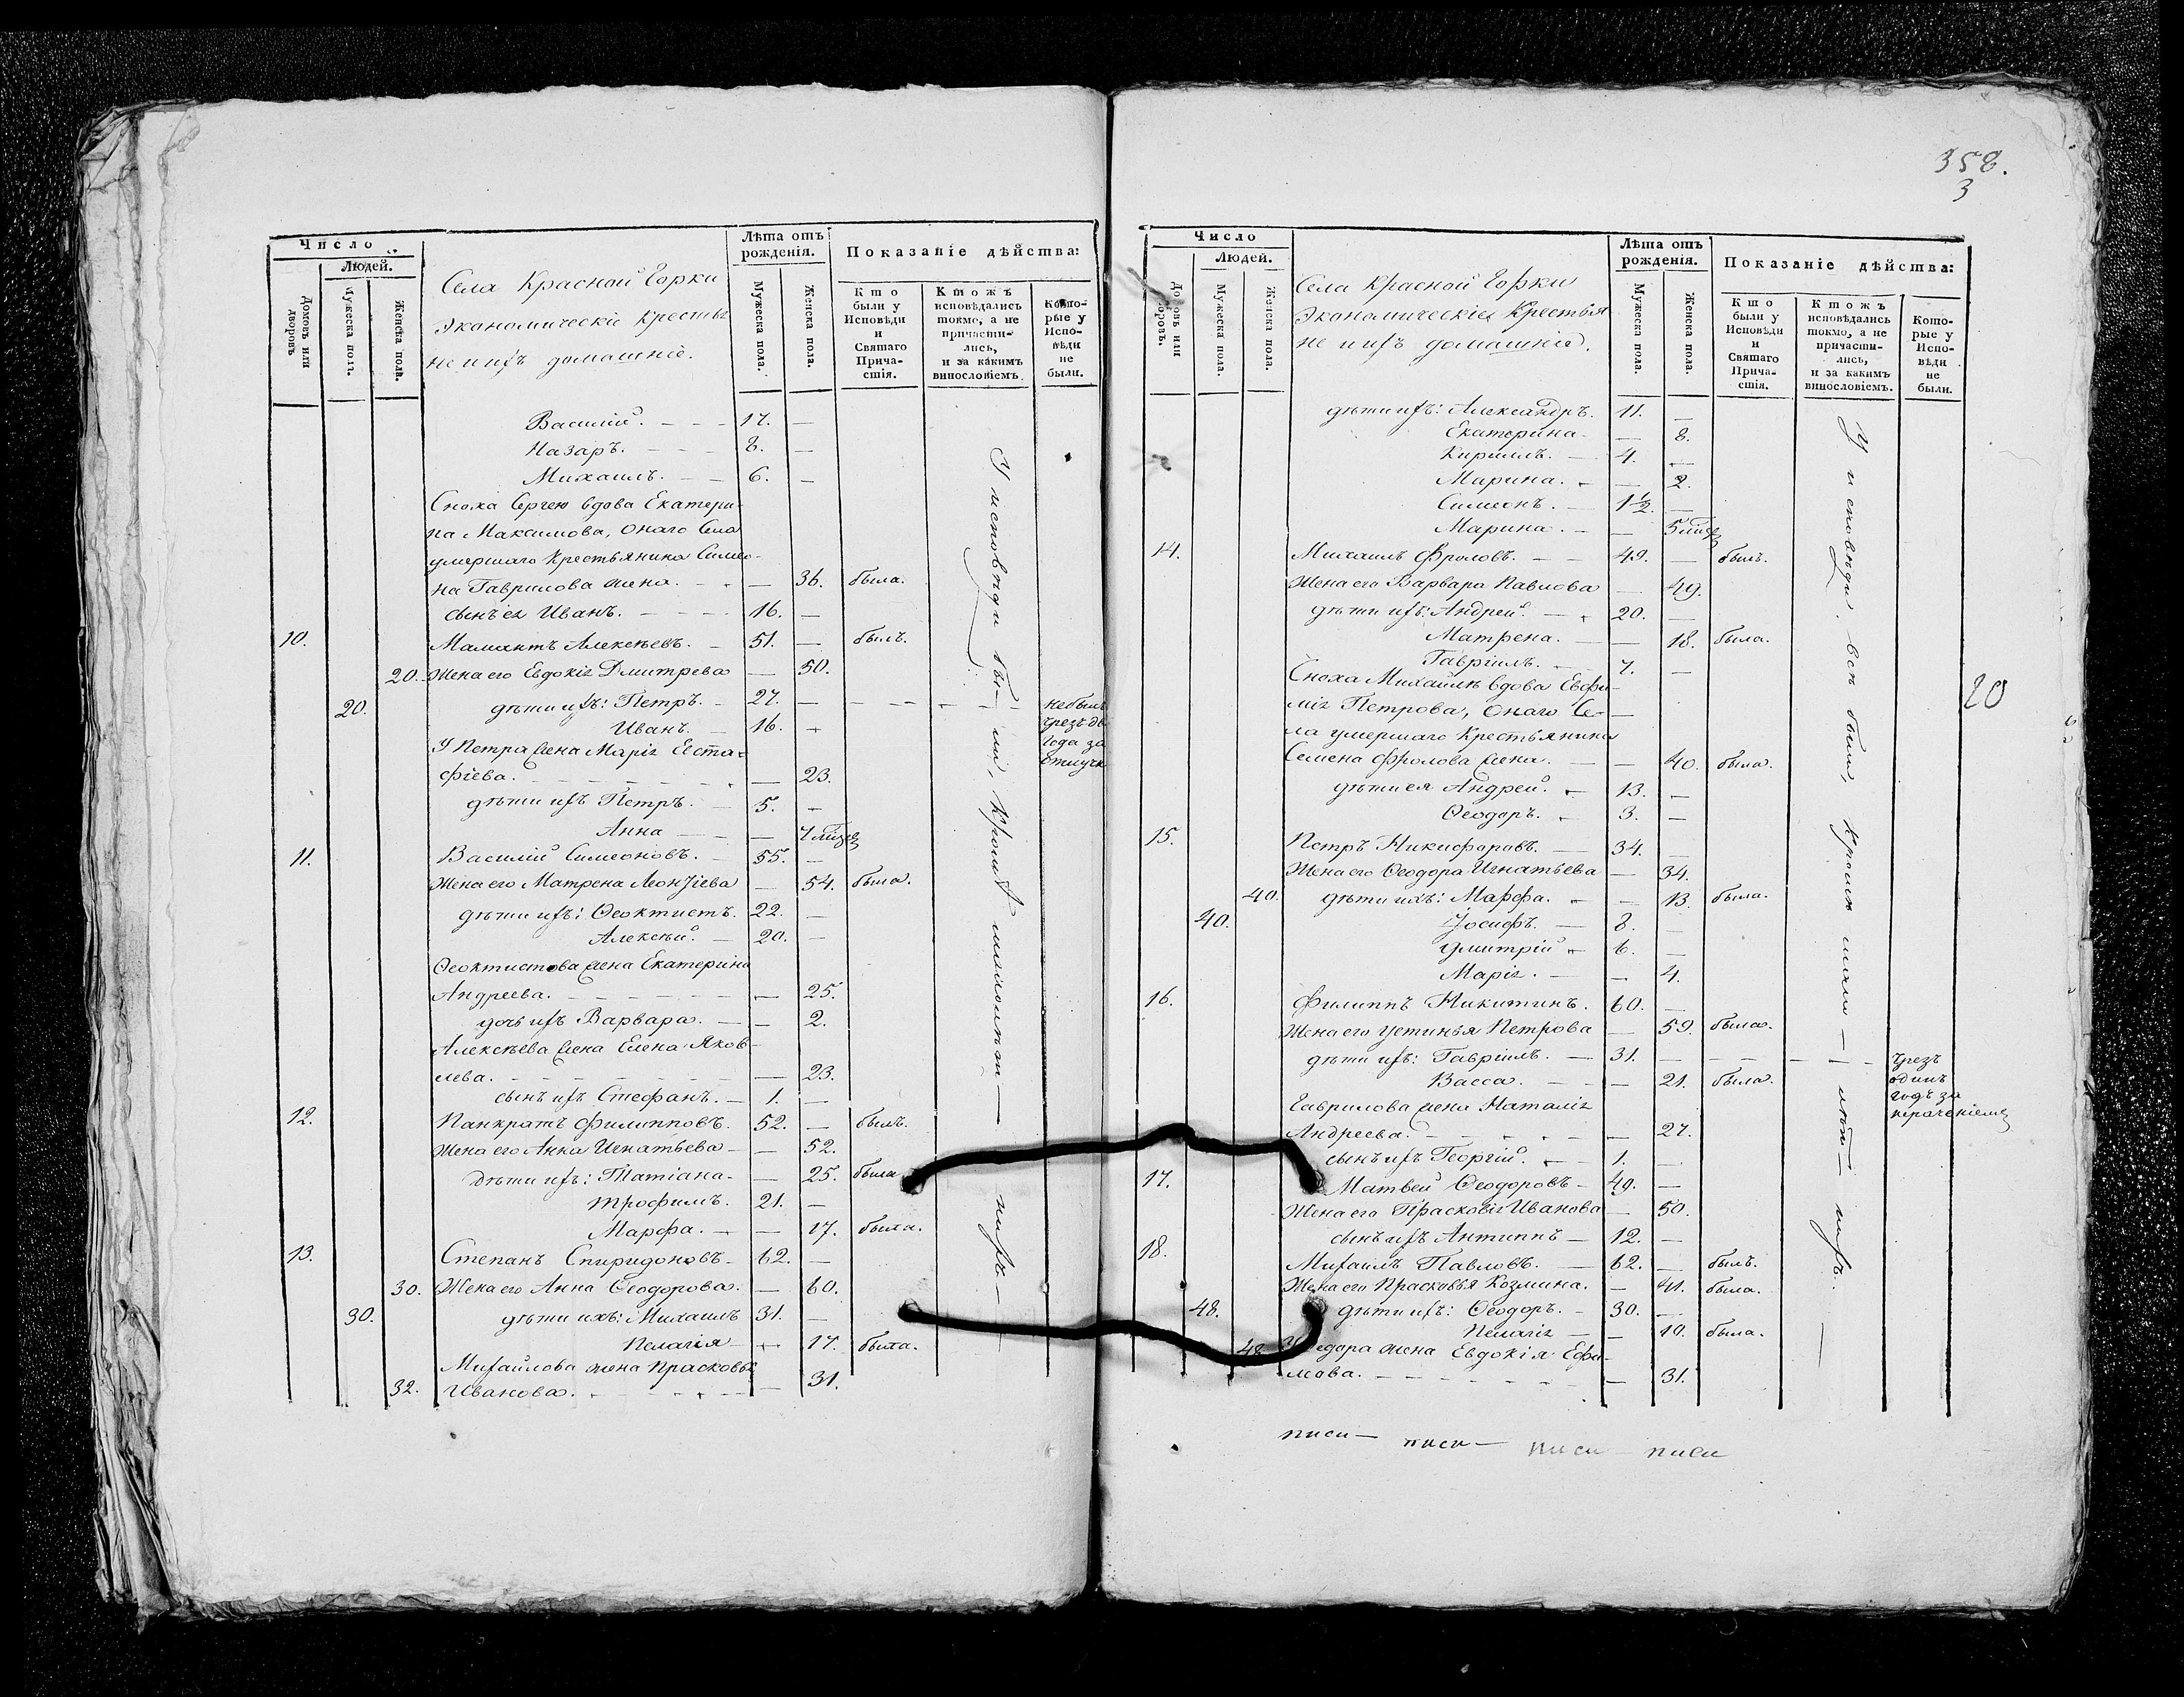 Число
Людей.
Домовъ или дворовъ
Мужеска полъ.
Женска полъ.
Села Красной Горки
Экономическіе крестья
не ихъ домашніе.
Лѣта отъ рожденія.
Мужеска пола.
Женска пола.
Показаніе дѣйства:
Кто были у Исповѣди и Святаго Причастія.
Ктожъ исповѣдались токмо, а не причастились, и за какимъ винословіемъ.
Которые у Исповѣди не были.
Василій. 17. —
Назаръ. 8. —
Михаилъ. 6. —
Сноха Сергею вдова Екатери-
на Максимова, онаго Села
умершаго Крестьянина Симео-
на Гаврилова жена. — 36. была.
сынъ ея Иванъ. 16. —
10. Мамантъ Алексѣевъ. 51. — былъ.
20. Жена его Евдокія Дмитрева — 50.
20. дѣти ихъ: Петръ. 27. — небылъ
Иванъ. 16. — чрезъ два
У Петра жена Марія Еста- года за
фіева. — 23. отлучк
дѣти ихъ Петръ. 5. —
Анна — 7 мцъ
11. Василій Симеоновъ. 55. —
Жена его Матрена Леонтіева — 54. была.
дѣти ихъ: Ѳеоктистъ. 22. —
Алексѣй. 20. —
Ѳеоктистова жена Екатерина
Андреева. — 25.
дочь ихъ Варвара. — 2.
Алексѣева жена Елена Яков-
лева. — 23.
сынъ ихъ Стефанъ. 1. —
12. Панкратъ Филипповъ. 52. — былъ.
Жена его Анна Игнатьева — 52.
дѣти ихъ: Татіана. — 25. была
Трофимъ. 21. —
Марфа. — 17. была.
13. Степанъ Спиридоновъ. 62. —
30. Жена его Анна Ѳеодорова. — 60.
30. дѣти ихъ: Михаилъ 31. —
Пелагія — 17. была.
Михайлова жена Прасковья
32. Иванова. — 31.
У исповѣди бы- ли, кромѣ малолѣт- нихъ
358.
3
Число
Людей.
Домовъ или дворовъ.
Мужеска пола.
Женска пола.
Села Красной Горки
Экономическіе Крестья
не ихъ домашніе.
Лѣта отъ рожденія.
Мужеска пола.
Женска пола.
Показаніе дѣйства:
Кто были у Исповѣди и Святаго Причастія.
Ктожъ исповѣдались токмо, а не причастились, и за какимъ винословіемъ.
Которые у Исповѣди не были.
дѣти ихъ: Александръ. 11. —
Екатерина — 8.
Кирилъ. 4. —
Марина. — 2.
Симеонъ. 1½. —
Марина. — 5 мцъ
14. Михаилъ Фроловъ. 49. — былъ.
Жена его Варвара Павлова — 49.
дѣти ихъ: Андрей. 20. —
Матрена. — 18. была.
Гавріилъ. 7. —
Сноха Михайлѣ вдова Евфи-
мія Петрова, онаго Се-
ла умершаго Крестьянина
Семена Фролова жена. — 40. была.
20
дѣти ея Андрей. 13. —
Ѳеодоръ. 3. —
15. Петръ Никифоровъ. 34. —
Жена его Ѳеодора Игнатьева — 34.
40. дѣти ихъ: Марфа. — 13. была.
40. Іосифъ. 8. —
Дмитрій 6. —
Марія. — 4.
16. Филиппъ Никитинъ. 60. —
Жена его Устинья Петрова — 59. была.
дѣти ихъ: Гавріилъ. 31. — чрезъ
Васса. — 21. была. одинъ
Гаврилова жена Наталія годъ за
Андреева. — 27.
сынъ ихъ Георгій. 1. —
17. Матвей Ѳеодоровъ 49. —
Жена его Прасковія Иванова — 50.
сынъ ихъ Антиппъ 12. —
18. Михаилъ Павловъ. 62. — былъ.
Жена его Прасковья Козмина. — 41. была.
48. дѣти ихъ: Ѳеодоръ. 30. —
Пелагія — 10. была.
48. Ѳедора жена Евдокія Ефи-
мова. — 31.
У исповѣди всѣ были, кромѣ мало- лѣт- нихъ.
писи — писи — писи — писи